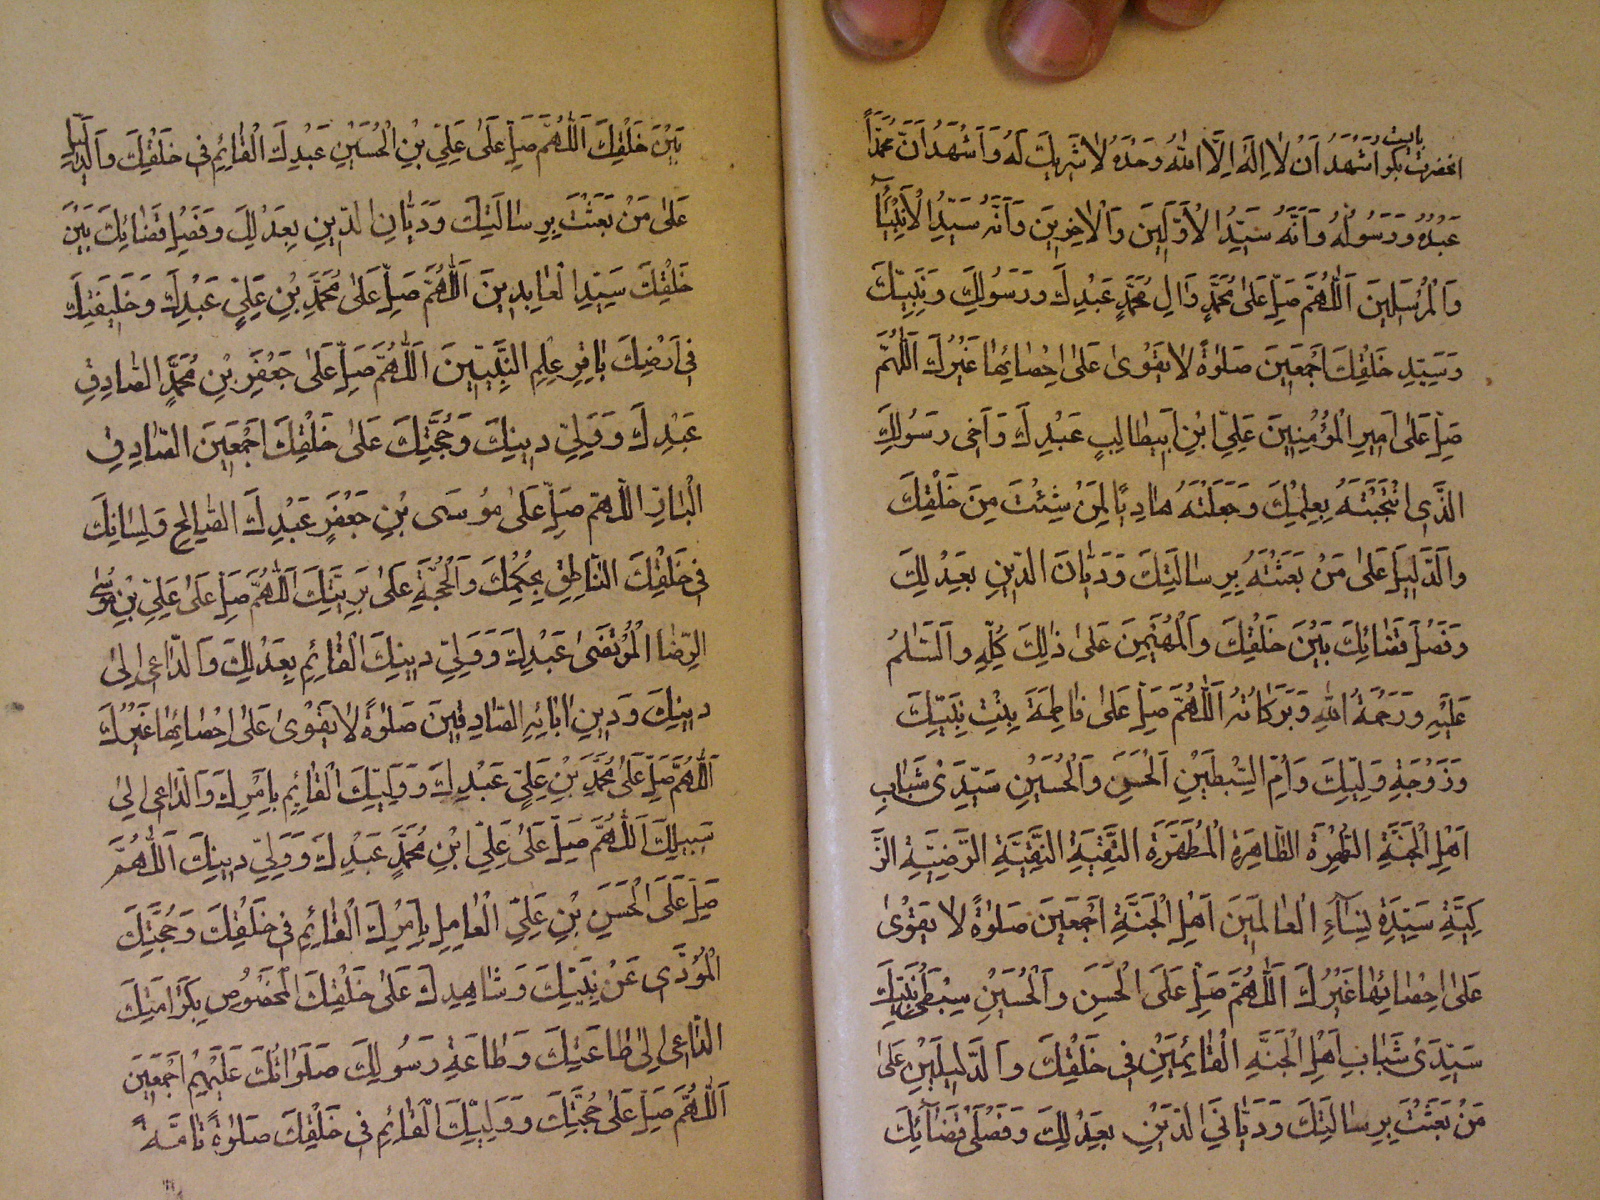 بایست
آنحضرت بگو اَشْهَدُ اَنْ لا اِلهَ اِلَّا اللهُ وَحْدَهُ لا شَرِيكَ لَهُ وَاَشْهَدُ اَنَّ مُحَمَّدًا
عَبْدُهُ وَرَسُولُهُ وَاَنَّهُ سَيِّدُ الْاَوَّلِينَ وَالْاخِرِينَ وَاَنَّهُ سَيِّدُ الْاَنْبِيَآءِ
وَالْمُرْسَلِينَ اَللّٰهُمَّ صَلِّ عَلىٰ مُحَمَّدٍ وَالِ مُحَمَّدٍ عَبْدِكَ وَرَسُولِكَ وَنَبِيِّكَ
وَسَيِّدِ خَلْقِكَ اَجْمَعِينَ صَلٰوةً لا يَقْوىٰ عَلىٰ اِحْصائِها غَيْرُكَ اَللّٰهُمَّ
صَلِّ عَلىٰ اَمِيرِ الْمُؤْمِنِينَ عَلِيِّ ابْنِ اَبِيطالِبٍ عَبْدِكَ وَاَخِى رَسُولِكَ
الَّذِى انْتَجَبْتَهُ بِعِلْمِكَ وَجَعَلْتَهُ هادِيًا لِمَنْ شِئْتَ مِنْ خَلْقِكَ
وَالدَّلِيلَ عَلىٰ مَنْ بَعَثْتَهُ بِرِسالَتِكَ وَدَيّانَ الدِّينِ بِعَدْلِكَ
وَفَصْلَ قَضائِكَ بَيْنَ خَلْقِكَ وَالْمُهَيْمِنَ عَلىٰ ذٰلِكَ كُلِّهِ وَالسَّلامُ
عَلَيْهِ وَرَحْمَةُ اللهِ وَبَرَكاتُهُ اَللّٰهُمَّ صَلِّ عَلىٰ فاطِمَةَ بِنْتِ نَبِيِّكَ
وَزَوْجَةِ وَلِيِّكَ وَاُمِّ السِّبْطَيْنِ الْحَسَنِ وَالْحُسَيْنِ سَيِّدَىْ شَبابِ
اَهْلِ الْجَنَّةِ الطُّهْرَةِ الطّاهِرَةِ الْمُطَهَّرَةِ التَّقِيَّةِ النَّقِيَّةِ الرَّضِيَّةِ الزَّ
كِيَّةِ سَيِّدَةِ نِسآءِ الْعالَمِينَ اَهْلِ الْجَنَّةِ اَجْمَعِينَ صَلٰوةً لا يَقْوىٰ
عَلىٰ اِحْصائِها غَيْرُكَ اَللّٰهُمَّ صَلِّ عَلَى الْحَسَنِ وَالْحُسَيْنِ سِبْطَىْ نَبِيِّكَ
سَيِّدَىْ شَبابِ اَهْلِ الْجَنَّةِ الْقائِمَيْنِ فِى خَلْقِكَ وَالدَّلِيلَيْنِ عَلىٰ
مَنْ بَعَثْتَ بِرِسالَتِكَ وَدَيّانَىِ الدِّينِ بِعَدْلِكَ وَفَصْلَىْ قَضآئِكَ
بَيْنَ خَلْقِكَ اَللّٰهُمَّ صَلِّ عَلىٰ عَلِيِّ بْنِ الْحُسَيْنِ عَبْدِكَ الْقائِمِ فِى خَلْقِكَ وَالدَّلِيلِ
عَلىٰ مَنْ بَعَثْتَ بِرِسالَتِكَ وَدَيّانِ الدِّينِ بِعَدْلِكَ وَفَصْلِ قَضائِكَ بَيْنَ
خَلْقِكَ سَيِّدِ الْعابِدِينَ اَللّٰهُمَّ صَلِّ عَلىٰ مُحَمَّدِ بْنِ عَلِيٍّ عَبْدِكَ وَخَلِيفَتِكَ
فِى اَرْضِكَ باقِرِ عِلْمِ النَّبِيِّينَ اَللّٰهُمَّ صَلِّ عَلىٰ جَعْفَرِ بْنِ مُحَمَّدٍ الصّادِقِ
عَبْدِكَ وَوَلِيِّ دِينِكَ وَحُجَّتِكَ عَلىٰ خَلْقِكَ اَجْمَعِينَ الصّادِقِ
الْبارِّ اَللّٰهُمَّ صَلِّ عَلىٰ مُوسَى بْنِ جَعْفَرٍ عَبْدِكَ الصّالِحِ وَلِسانِكَ
فِى خَلْقِكَ النّاطِقِ بِحُكْمِكَ وَالْحُجَّةِ عَلىٰ بَرِيَّتِكَ اَللّٰهُمَّ صَلِّ عَلىٰ عَلِيِّ بْنِ مُوسَى
الرِّضَا الْمُرْتَضىٰ عَبْدِكَ وَوَلِيِّ دِينِكَ الْقائِمِ بِعَدْلِكَ وَالدّاعِى اِلىٰ
دِينِكَ وَدِينِ ابائِهِ الصّادِقِينَ صَلٰوةً لا يَقْوىٰ عَلىٰ اِحْصائِها غَيْرُكَ
اَللّٰهُمَّ صَلِّ عَلىٰ مُحَمَّدِ بْنِ عَلِيٍّ عَبْدِكَ وَوَلِيِّكَ الْقائِمِ بِاَمْرِكَ وَالدّاعِى اِلىٰ
سَبِيلِكَ اَللّٰهُمَّ صَلِّ عَلىٰ عَلِيِّ ابْنِ مُحَمَّدٍ عَبْدِكَ وَوَلِيِّ دِينِكَ اَللّٰهُمَّ
صَلِّ عَلَى الْحَسَنِ بْنِ عَلِيٍّ الْعامِلِ بِاَمْرِكَ الْقائِمِ فِى خَلْقِكَ وَحُجَّتِكَ
الْمُؤَدِّى عَنْ نَبِيِّكَ وَشاهِدِكَ عَلىٰ خَلْقِكَ الْمَخْصُوصِ بِكَرامَتِكَ
الدّاعِى اِلىٰ طاعَتِكَ وَطاعَةِ رَسُولِكَ صَلَواتُكَ عَلَيْهِمْ اَجْمَعِينَ
اَللّٰهُمَّ صَلِّ عَلىٰ حُجَّتِكَ وَوَلِيِّكَ الْقائِمِ فِى خَلْقِكَ صَلٰوةً تامَّةً